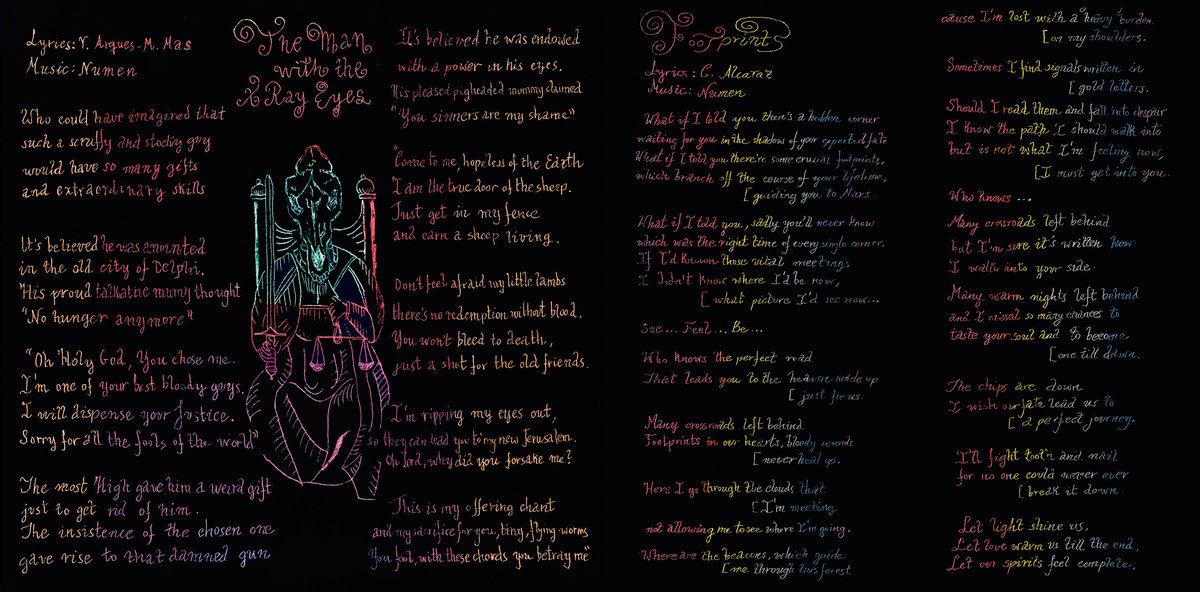 Lyrics: V. Arques - M. Mas
Music: Numen
The Man
with the
X Ray Eyes
Who could have imagined that
such a scruffy and stocky guy
would have so many gifts
and extraordinary skills
It's believed he was anointed
in the old city of Delphi.
His proud talkative mumy thought
"No hunger anymore"
"Oh Holy God, You chose me.
I'm one of your best bloody guys.
I will dispense your Justice.
Sorry for all the fools of the world"
The most High gave him a weird gift
just to get rid of him.
The insistence of the chosen one
gave rise to that damned gun
It's believed he was endowed
with a power in his eyes.
His pleased pigheaded mummy claimed
"You sinners are my shame"
"Come to me, hopeless of the Earth
I am the true door of the sheep.
Just get in my fence
and earn a sheep living.
Don't feel afraid my little lambs
there's no redemption without blood.
You won't bleed to death,
just a shot for the old friends.
I'm ripping my eyes out,
so they can lead you to my new Jerusalem.
Oh lord, why did you forsake me?
This is my offering chant
and my sacrifice for you, tiny, flying worms
You fool, with these chords you betray me"
Footprints
Lyrics: C. Alcaraz
Music: Numen
What if I told you there's a hidden corner
waiting for you in the shadow of your expected fate
What if I told you there're some crucial footprints,
which branch off the course of your lifetime,
[guiding you to Mars.
What if I told you, sadly you'll never know
which was the right time of every single corner.
If I'd known those vital meetings
I didn't know where I'd be now,
[what picture I'd see now...
See... Feel... Be...
Who knows the perfect road
That leads you to the heaven made up
[just for us.
Many crossroads left behind
Footprints in our hearts, bloody wounds
[never heal up.
Here I go through the clouds that
[I'm meeting
not allowing me to see where I'm going.
Where are the beacons, which guide
[me through this forest
cause I'm lost with a heavy burden
[on my shoulders.
Sometimes I find signals written in
[gold letters.
Should I read them and fall into despair
I know the path I should walk into
but is not what I'm feeling now,
[I must get into you.
Who knows...
Many crossroads left behind
but I'm sure it's written how
I walk into your side.
Many warm nights left behind
and I missed so many chances to
taste your soul and to become
[one till dawn.
The chips are down
I wish our fate lead us to
[a perfect journey.
I'll fight tooth and nail
for no one could never ever
[break it down.
Let light shine us,
Let love warm us till the end,
Let our spirits feel complete.